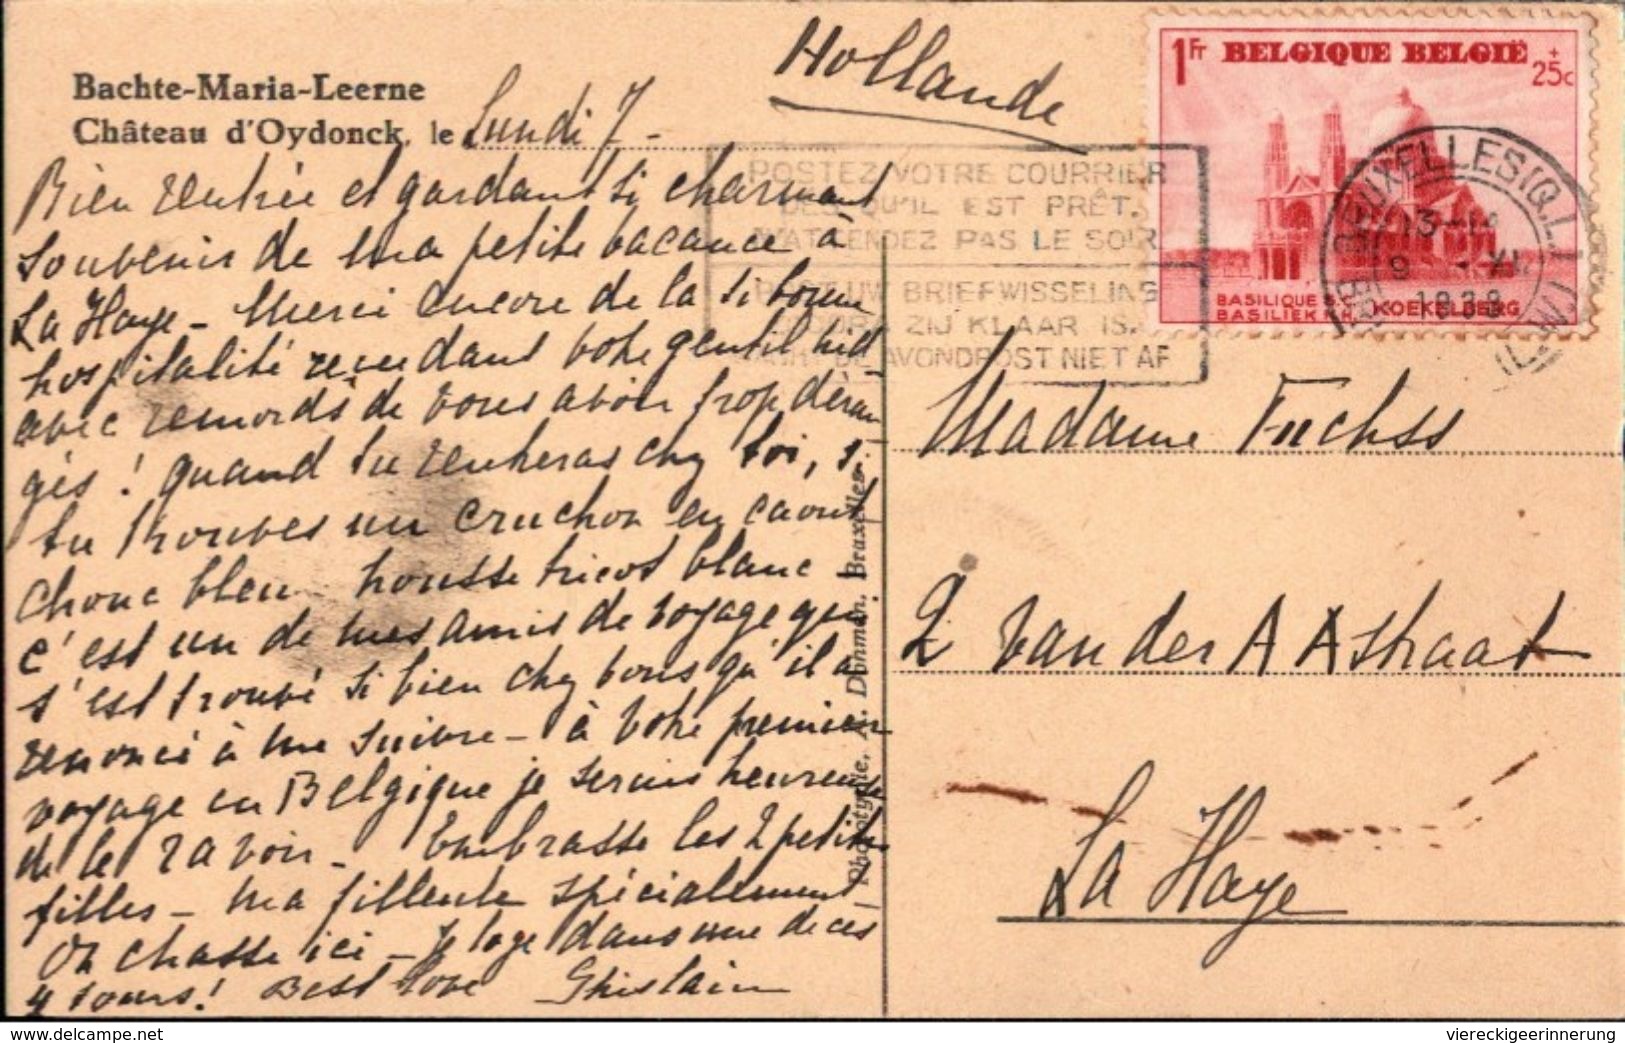 Bachte-Maria-Leerne
Château d'Oydonck, le Lundi 7 -
Bien rentrée et gardant si charmant
souvenir de ma petite vacance à
La Haye - Merci encore de la si bonne
hospitalité rendant votre gentil
avec remords de vous avoir trop déran
gés ! quand tu rentreras chez toi, si
tu trouves un cruchon en caout
chouc bleu housse tricot blanc -
c'est un de mes amis de voyage qui
s'est trouvé si bien chez vous qu'il a
renoncé à me suivre - à votre premier
voyage en Belgique je serais heureuse
de le ravoir - Embrasse les 2 petites
filles - ma filleule spécialement
On chasse ici - Je loge dans une de ces
4 tours ! Best love Ghislain
Phototypie. A. Dohmen. Bruxelles.
Hollande
1 Fr BELGIQUE BELGIË + 25c
BASILIQUE S.C. KOEKELBERG
BASILIEK H.H.
BRUXELLES (Q.L.)
13-14
9 XI
1938
BRUSSEL (L.W.)
POSTEZ VOTRE COURRIER
DÈS QU'IL EST PRÊT.
N'ATTENDEZ PAS LE SOIR
POST UW BRIEFWISSELING
ZODRA ZIJ KLAAR IS.
WACHT DE AVONDPOST NIET AF
Madame Fuchss
2 Van der A Astraat
La Haye
www.delcampe.net
viereckigeerinnerung